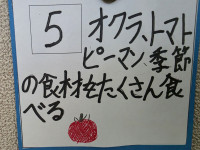 5
オクラ、トマト
ピーマン、季節
の食材をたくさん食
べる